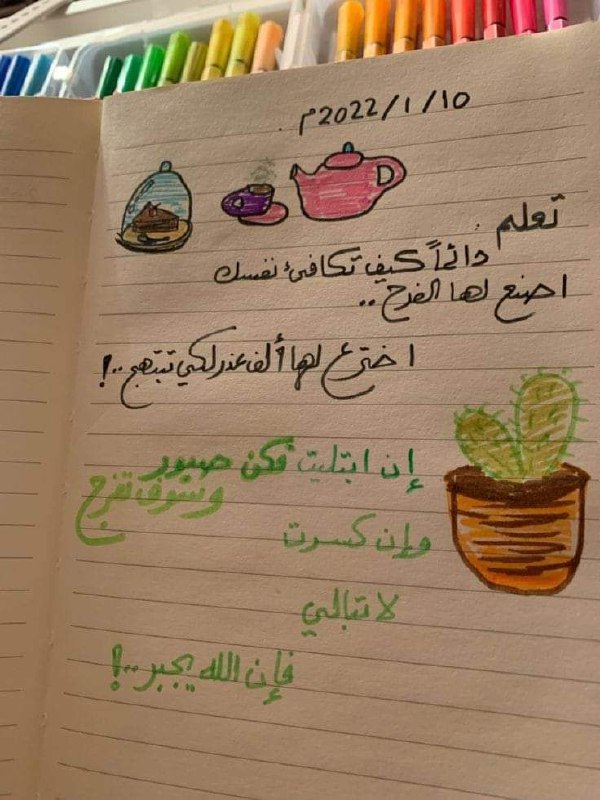 2022/1/10م
تعلم
دائماً كيف تكافئ نفسك
اصنع لها الفرح..
اخترع لها ألف عذر لكي تبتهج..!
إن ابتليت فكن صبور
وسوف تفرج
وإن كسرت
لا تبالي
فإن الله يجبر..!